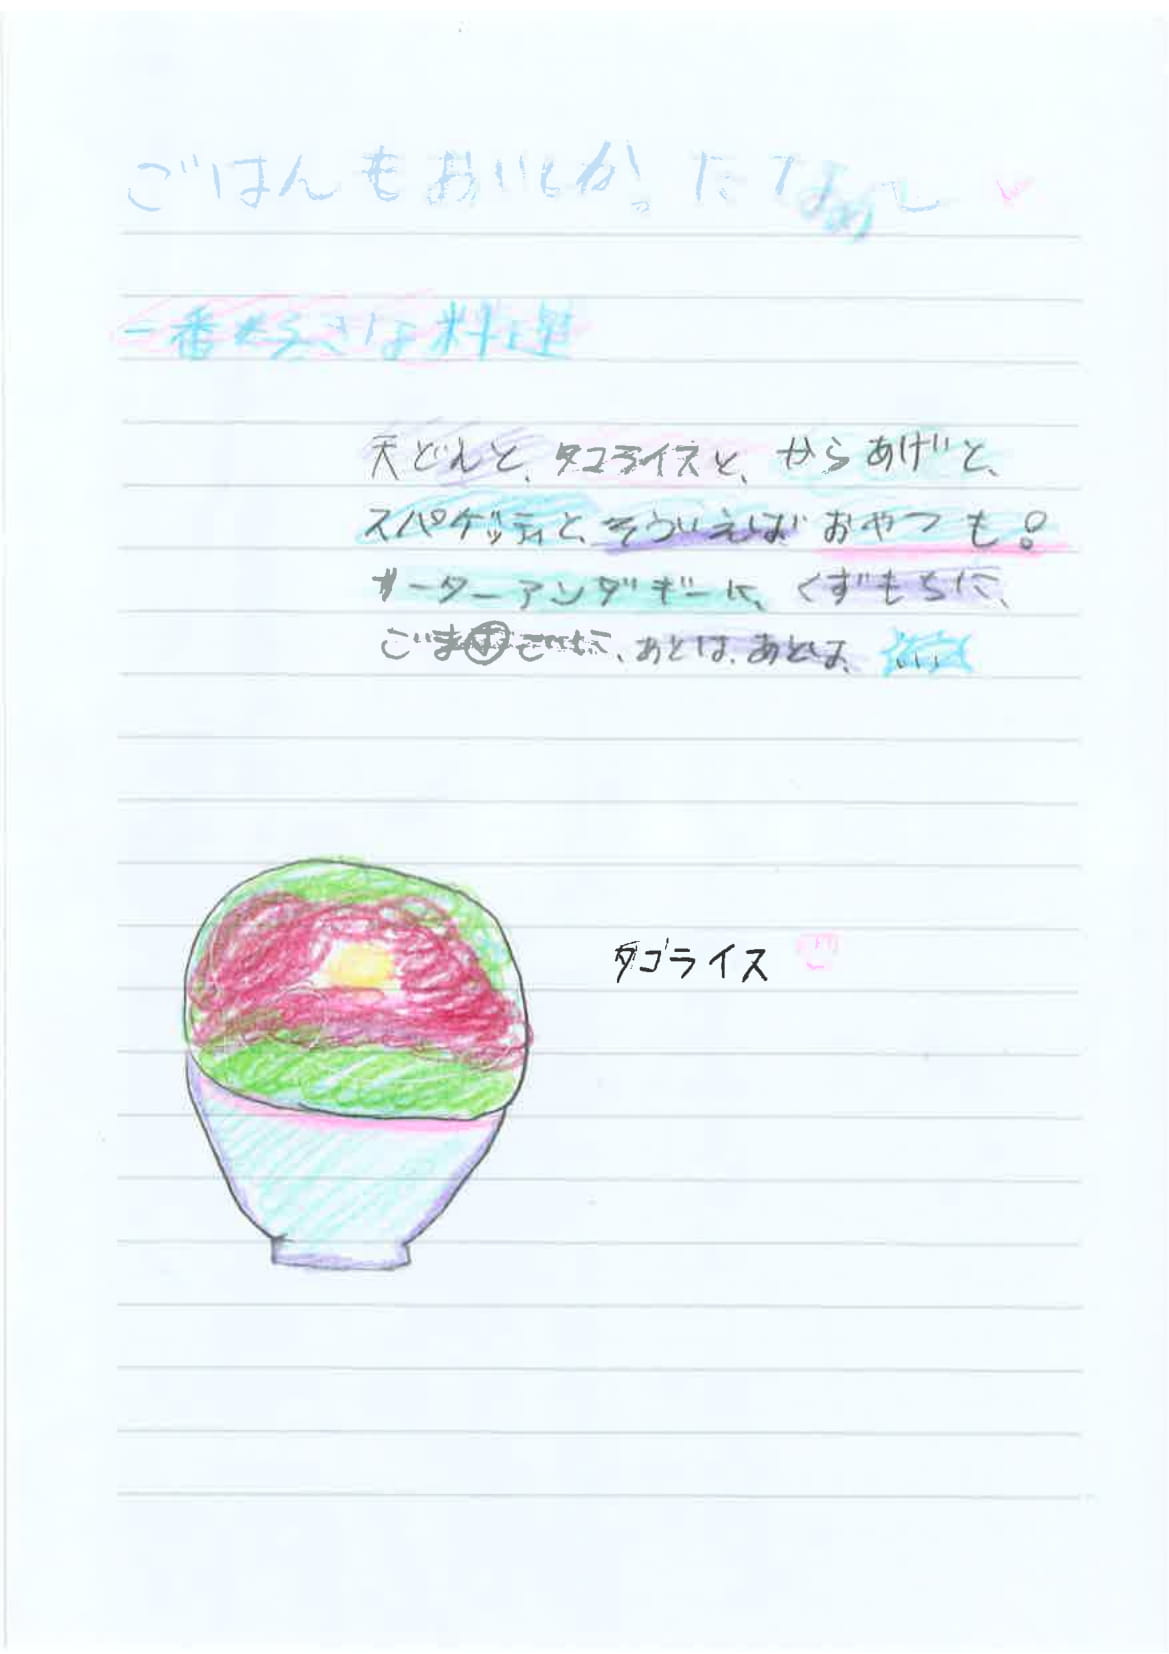 ごはんもおいしかったなぁ〜
一番好きな料理
天どんと、タコライスと、からあげと、
スパゲッティと、そういえばおやつも!
サーターアンダギーに、くずもちに、
ごま、あとは、あとは、...
タコライス